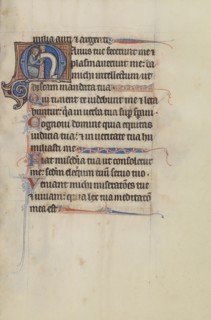 milia auri et argenti.
Manus tue fecerunt me et
plasmaverunt me: da
michi intellectum ut
discam mandata tua
Qui timent te videbunt me et leta
buntur: quia in verba tua super speravi.
Cognovi domine quia equitas
iudicia tua: et in veritate tua hu
miliasti me
Fiat misericordia tua ut consoletur
me: secundum eloquium tuum servo tuo.
Veniant michi miserationes tue
et vivam: quia lex tua meditatio
mea est